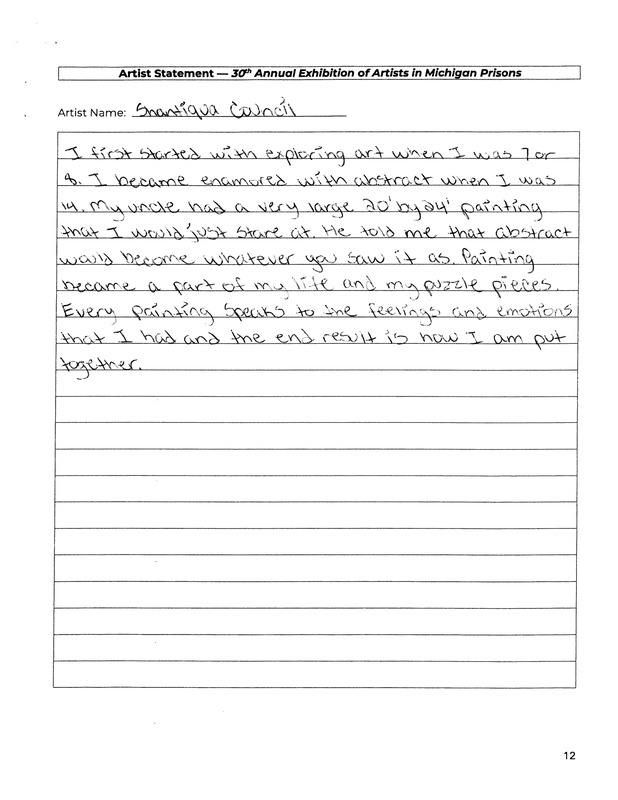 Artist Statement — 30th Annual Exhibition of Artists in Michigan Prisons
Artist Name: Shantiqua Council
I first started with exploring art when I was 7 or
8. I became enamored with abstract when I was
14. My uncle had a very large 20' by 24' painting
that I would just stare at. He told me that abstract
would become whatever you saw it as. Painting
became a part of my life and my puzzle pieces.
Every painting speaks to the feelings and emotions
that I had and the end result is how I am put
together.
12